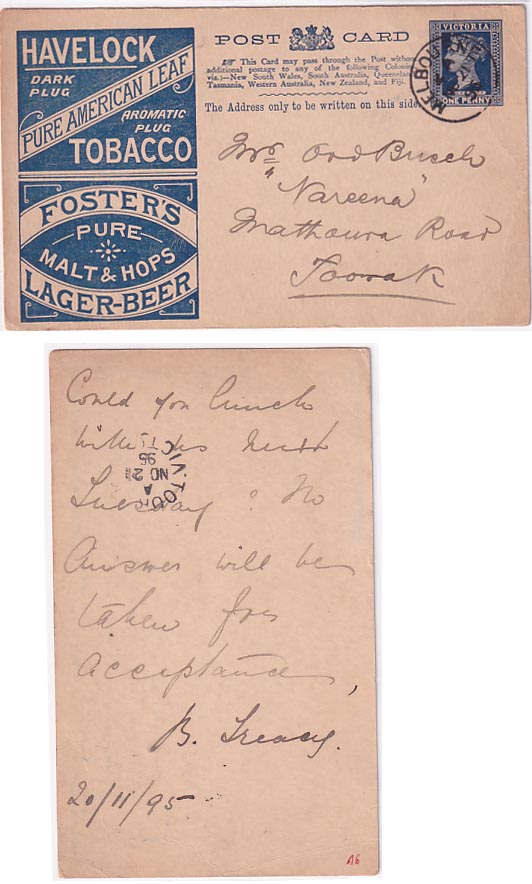 HAVELOCK
DARK
PLUG
PURE AMERICAN LEAF
AROMATIC
PLUG
TOBACCO
FOSTER'S
PURE
MALT & HOPS
LAGER-BEER
POST CARD
This Card may pass through the Post without
additional postage to any of the following Colonies
viz.:—New South Wales, South Australia, Queensland
Tasmania, Western Australia, New Zealand, and Fiji.
The Address only to be written on this side.
VICTORIA
ONE PENNY
MELBOURNE
Mrs Ord Busch
"Nareena"
Mathoura Road
Toorak
Could you lunch
with us next
Tuesday? No
Answer will be
taken for
acceptance,
B. Treacy.
20/11/95
A
NO 2
95
16